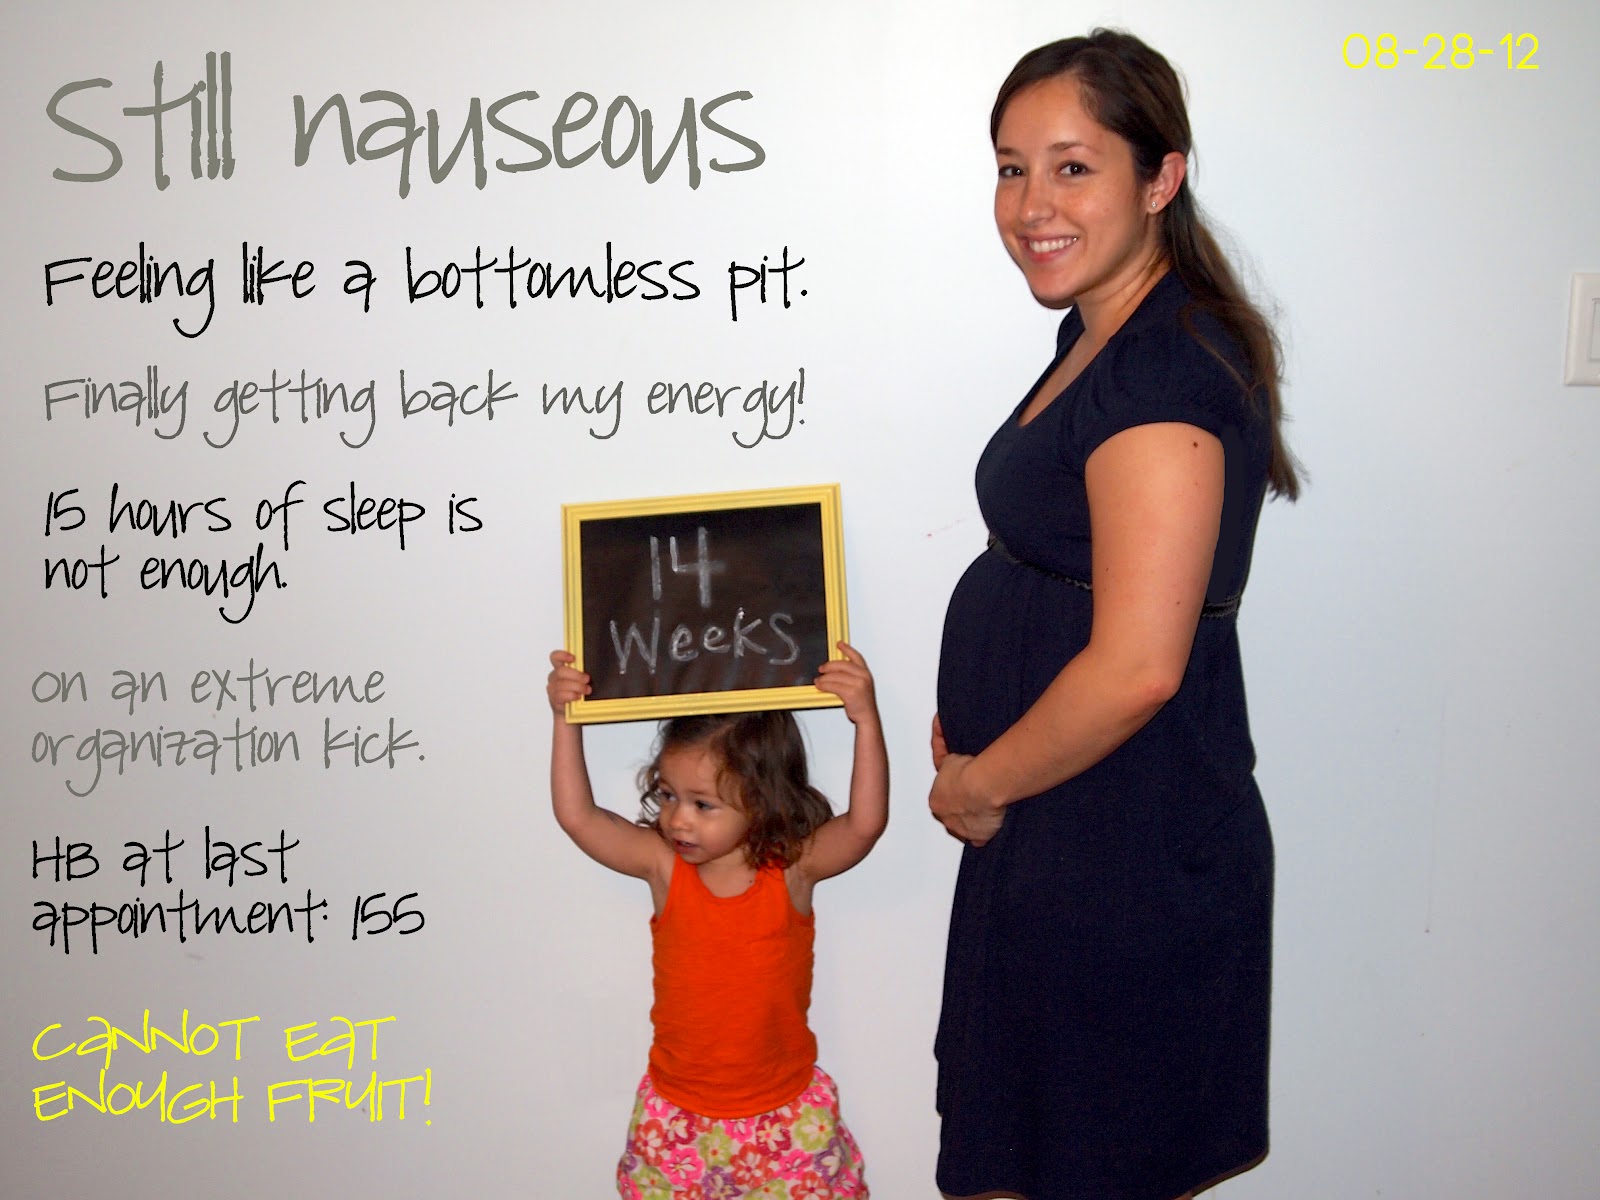 08-28-12
Still nauseous
Feeling like a bottomless pit.
Finally getting back my energy!
15 hours of sleep is
not enough.
14
Weeks
on an extreme
organization kick.
HB at last
appointment: 155
CANNOT EAT
ENOUGH FRUIT!